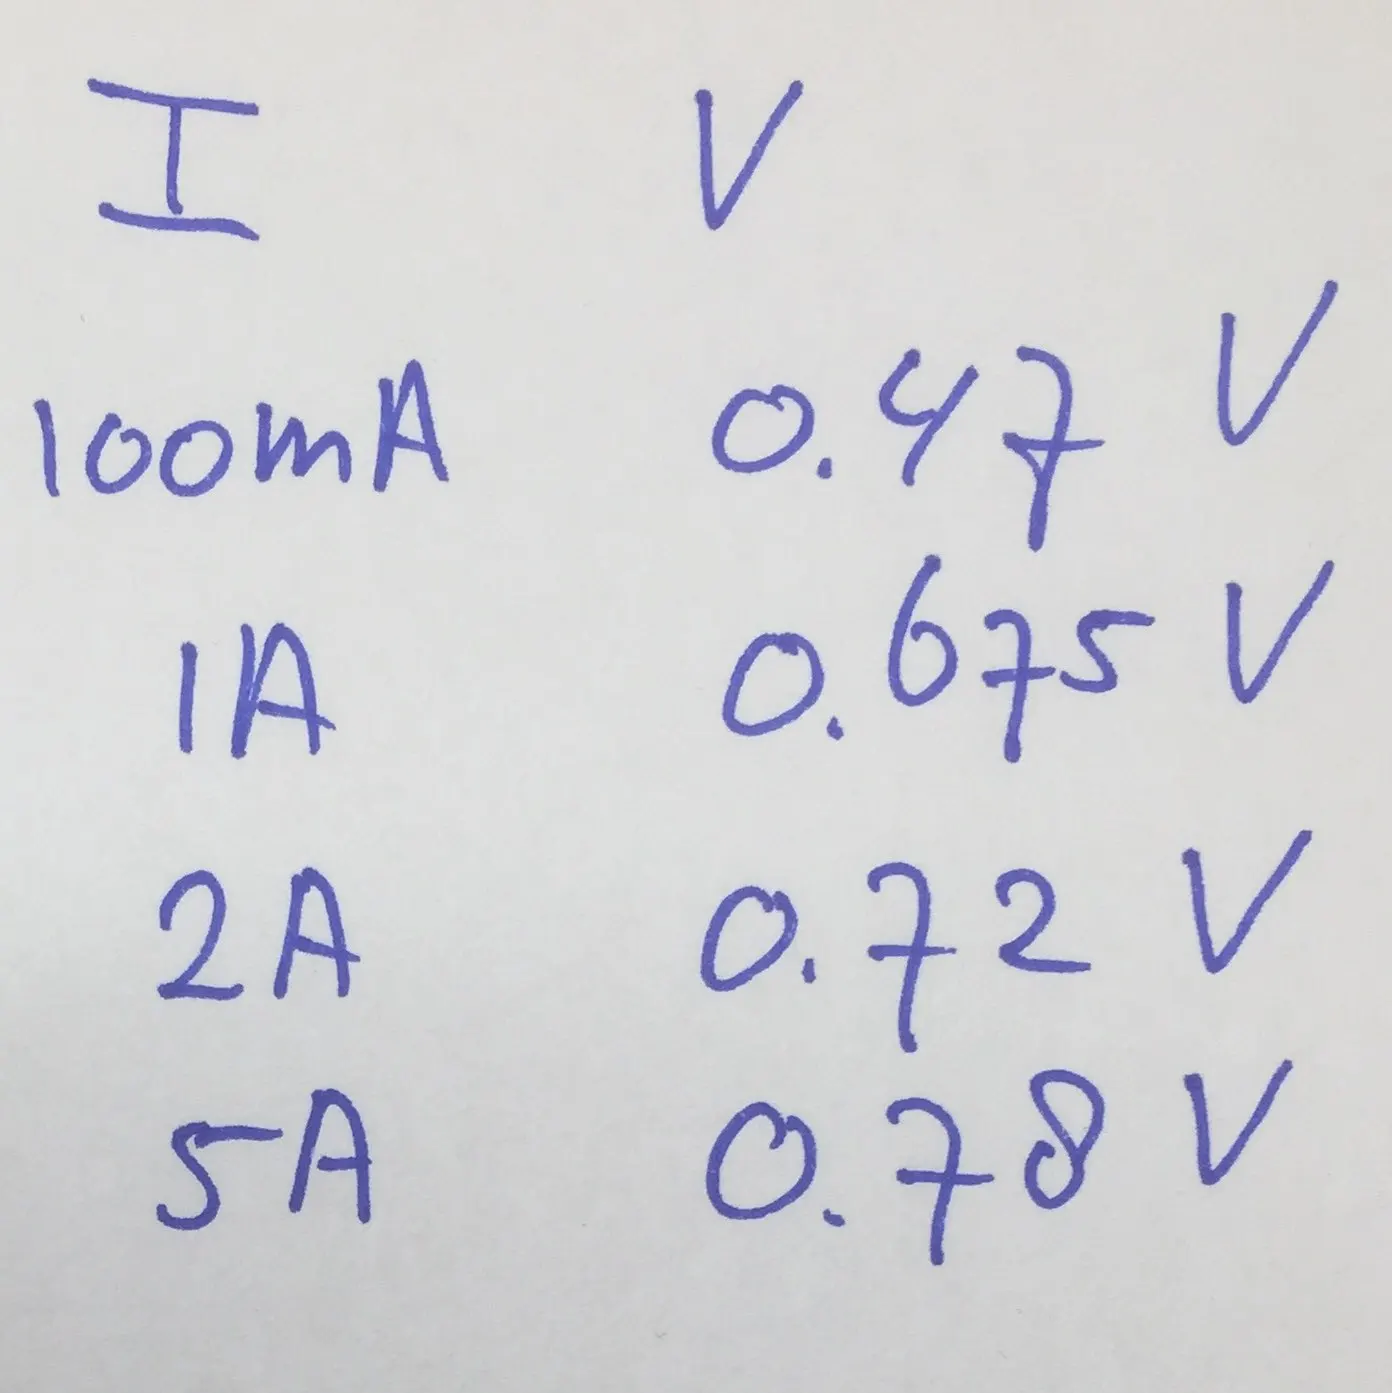 I V
100mA 0.47 V
1A 0.675 V
2A 0.72 V
5A 0.78 V